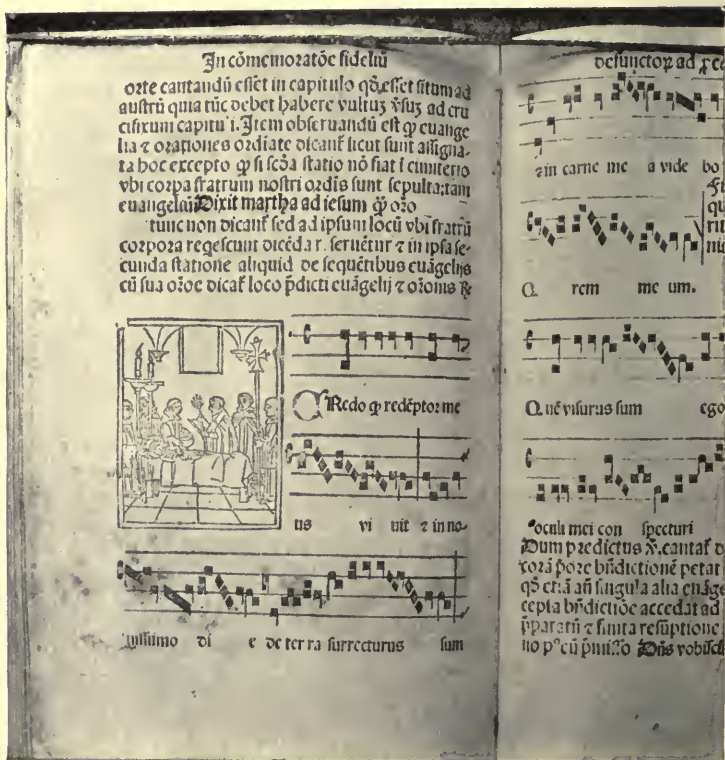 In cōmemoratōe fideliū
orte cantandū esset in capitulo qđ esset situm ad
austrū quia tūc debet habere vultuȝ ꝟsuȝ ad cru
cifixum capitu i. Item obseruandū est ꝙ euange
lia ⁊ orationes ordiate dicant̃ sicut sunt assigna-
ta hoc excepto ꝙ si scđa statio nō fiat ī cimiterio
vbi corpa fratrum nostri ordīs sunt sepulta: tam
euangeliū Dixit martha ad iesum ꝙ oro
tunc non dicant̃ sed ad ipsum locū vbi fratrū
corpora reqescunt dicēda r. seruētur ⁊ in ipsa se-
cunda statione aliquid de sequētibus euāgelijs
cū sua orōe dicat̃ loco p̄dicti euāgelij ⁊ orōnis ℟
CRedo ꝙ redēptor me
us vi uit ⁊ in no-
uissimo di e de ter ra surrecturus sum
defunctoꝝ ad
⁊ in carne me a vide bo
qu
rit
nu
O. rem me um.
Q. uē visurus sum ego
oculi mei con specturi
Dum predictus ꝟ. cantat̃
corā pore bn̄dictionē petat
qđ etiā añ singula alia euāge
cepta bn̄dictiōe accedat ad
p̄paratū ⁊ finita resūptione
Dn̄s vobisc